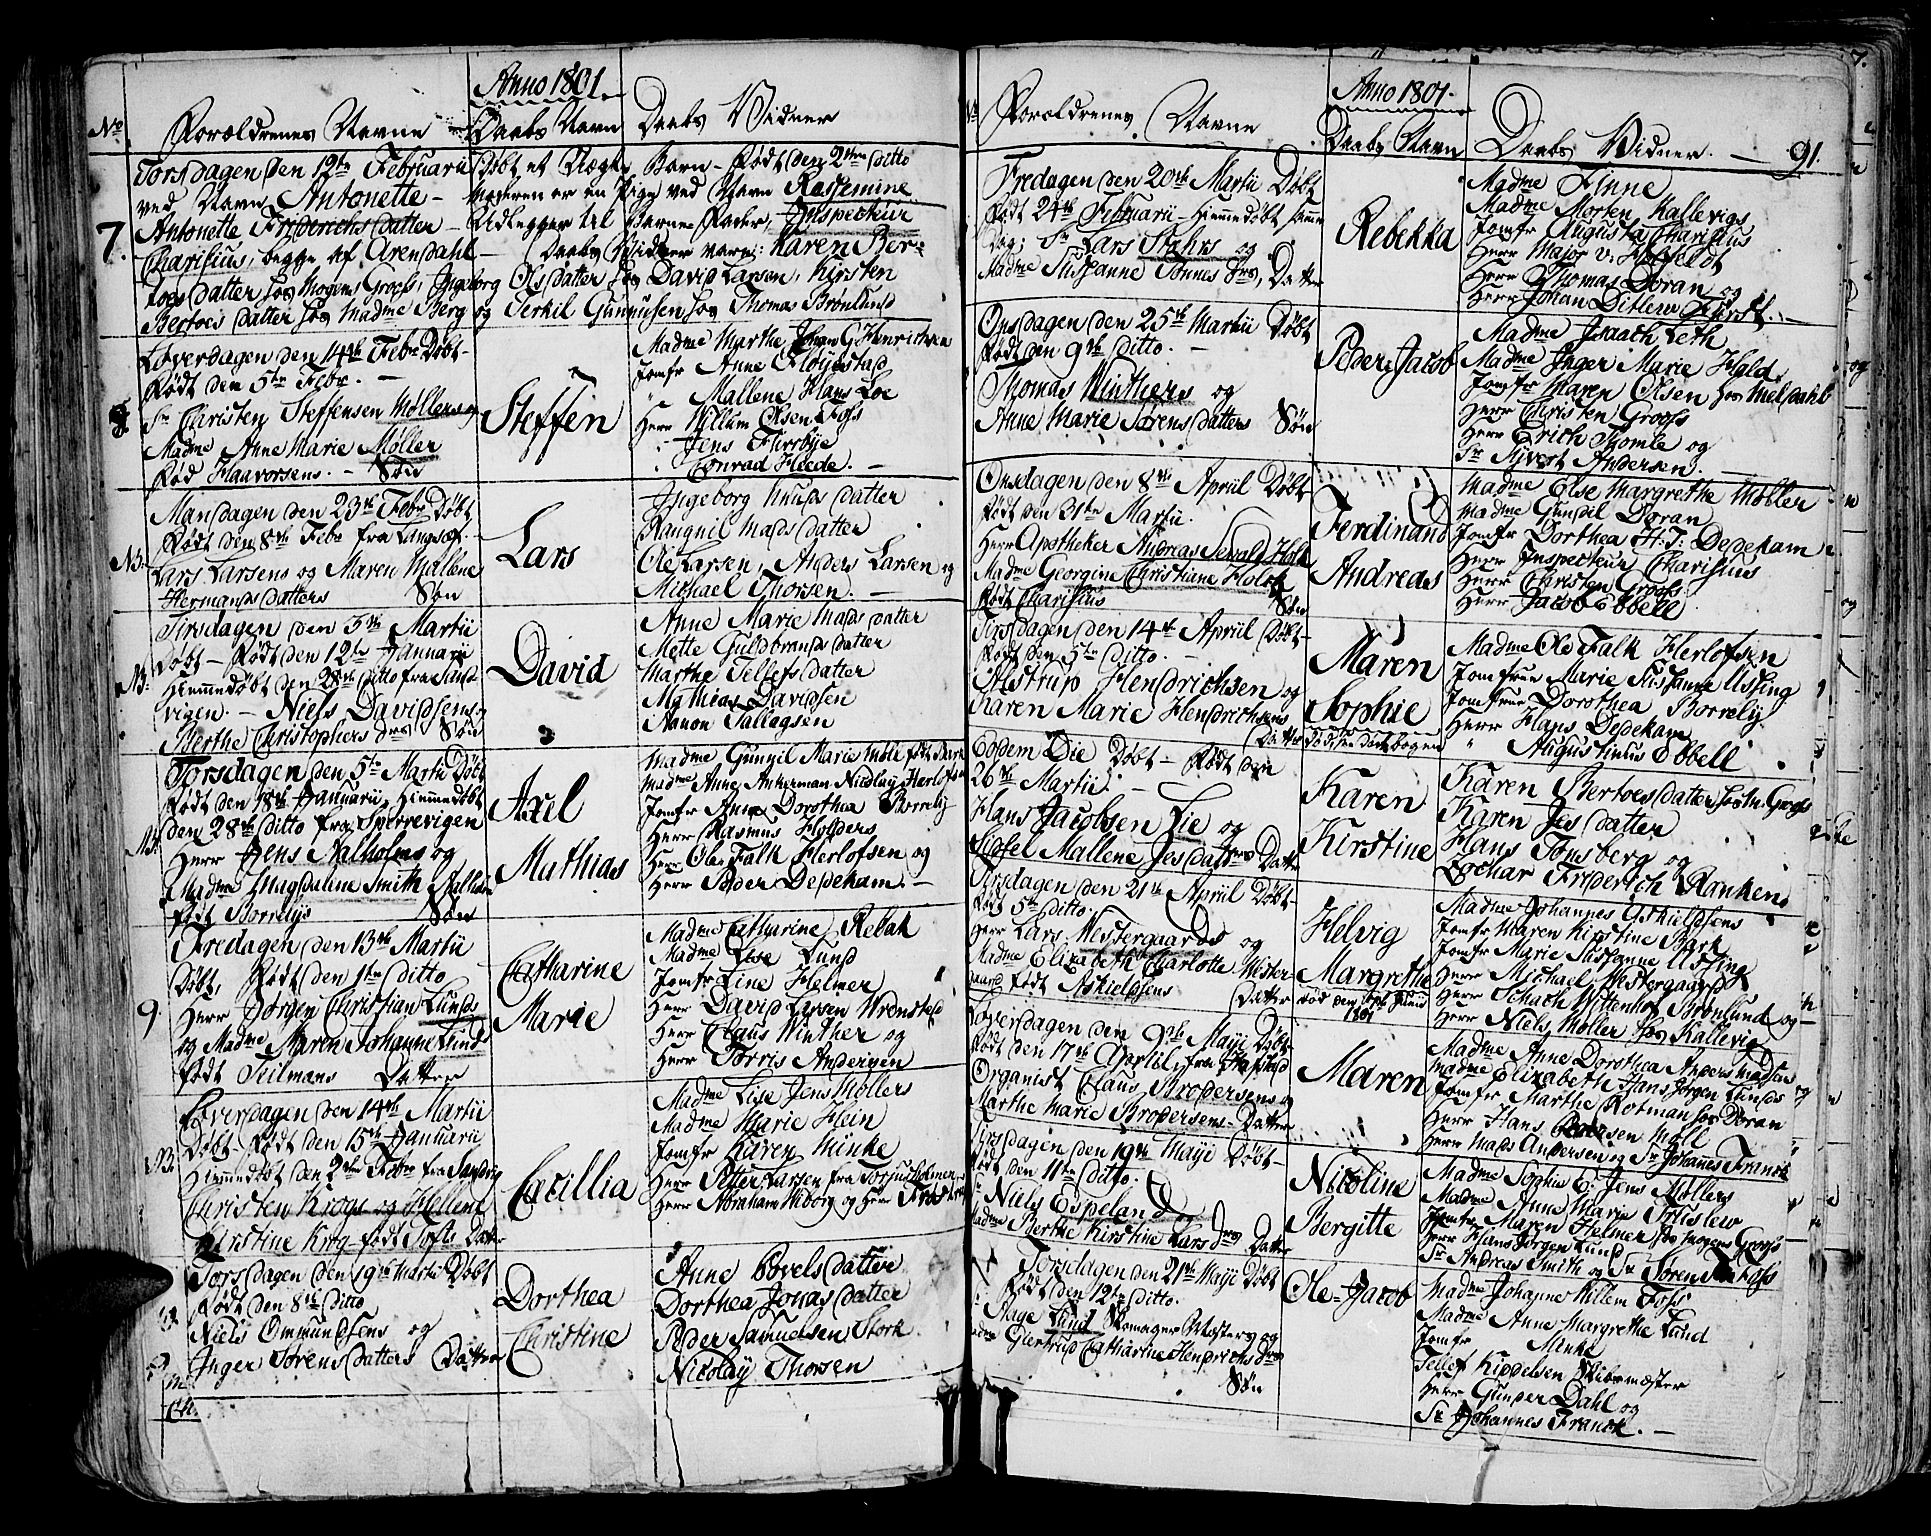 Anno 1801.
No Forældrenes Navne Daabs Navn Daabs Vidner
Torsdagen den 12te Februarii Døbt et Uægte Barn - Født den 2den Ditto
ved Navn Antonette - Moderen er en Pige ved Navn Rasemine
7. Antonette Friderichsdatter - Udlegger til Barne Fader, Inspecteur
Charisius, begge af Arendahl - Daabs Vidner vare: Karen Ber-
toesdatter hos Mogens Groos, Ingeborg Olsdatter hos David Larsen, Kirsten
Bertoesdatter hos Madme Berg og Terkil Gunnufsen hos Thomas Brønlund
Løverdagen den 14de Febr Døbt -
Født den 5te Febr. -
8 Sr Christen Steffensen Møllers og
Madme Anne Marie Møller
Fød Haavorsens. - Søn
Steffen
Madme Marthe Johan G Henrichsen
Jomfr Anne Fløyestad
" Mallene Hans Loe
Herr Willum Olsen Foss
: Jens Fursbye
: Conrad Heede. -
Mandagen den 23de Febr Døbt
Født den 8de Febr fra Langsæt. -
NB. Lars Larsens og Maren Mallene
Hermansdatters Søn
Lars
Ingeborg Knudsdatter
Rangnil Madsdatter
Ole Larsen, Anders Larsen og
Michael Thorsen. -
Tirsdagen den 3de Martii
Døbt - Født den 12te Januarii
NB: Hiemmedøbt den 28de Ditto fra Sand
vigen. - Niels Davidsens og
Berthe Christophersdrs Søn
David
Anne Marie Madsdatter
Mette Guldbrandsdatter
Marthe Tellefsdatter
Mathias Davidsen
Aanon Tallagsen
Torsdagen den 5te Martii Døbt
Født den 18de Januarii, Hiemmedøbt
den 28de Ditto fra Sperrevigen
NB. Herr Jens Aalholms og
Madme Magdaline Smith Aalholm
født Borrelys Søn
Axel
Mathias
Madme Gunnil Marie Møll
Madme Anne Ankerman Nicolay Herlofsen
Jomfr Anne Dorothea Borrely
Herr Rasmus Holders
Herr Ole Falk Herlofsen og
Herr Peder Dedekam. -
Fredagen den 13de Martii
Døbt, Født den 1te Ditto
9. Herr Jørgen Christian Lunds
og Madme Maren Johanne Lunds
født Teilmans Datter
Catharine
Marie
Madme Catharine Rebak
Madme Else Lund
Jomfr Line Helmer
Herr David Larsen Wrensted
Herr Claus Winther og
Herr Torris Andersen
Løverdagen den 14de Martii
Døbt - Født den 15de Januarii
NB. Hiemmedøbt den 2den Febr fra Sandvig
Christen Krogs og Hellene
Kirstine Krog født Tofts Datter
Cecillia
Madme Lise Jens Møllers
Madme Marie Hein
Jomfr Karen Minke
Herr Petter Larsen fra Torjusholmen
Herr Abraham Wiborg og Herr
Torsdagen den 19de Martii Døbt
Født den 8de Ditto
Niels Ommundsens og
Inger Sørensdatters Datter
Dorthea
Christine
Anne Povelsdatter
Dorthea Jonasdatter
Peder Samuelsen Stork
Nicolay Thorsen
Anno 1801.
Forældrenes Navne Daabs Navn Daabs Vidner. - 91.
Fredagen den 20de Martii Døbt
Født 24de Februarii - Hiemmedøbt samme
Dag; Sr Lars Stahrs og
Madme Susanne Tønnes drs, Datter
Rebekka
Madme Finne
Madme Morten Kallevigs
Jomfr Augusta Charisius
Herr Major v: Hirfeldt
Herr Thomas Doran og
Herr Johan Ditlew Fürst. -
Onsdagen den 25de Martii Døbt
Født den 9de Ditto. -
Thomas Winthers og
Anne Marie Sørensdatters Søn
Peder Jacob
Madme Isaach Leth
Madme Inger Marie Hald
Jomfr Maren Olsen hos Meldahl
Herr Christen Groos
Herr Erich Thomle og
Sr Sivert Andersen. -
Onsdagen den 8de Apriil Døbt
Født den 31te Martii.
Herr Apotheker Andreas Sewald Holk
Madme Georgine Christiane Holck
Født Charisius Søn
Ferdinand
Andreas
Madme Else Margrethe Møller
Madme Gundil Doran
Jomfr Dorthea H. J: Dedekam
Herr Inspecteur Charisius
Herr Christen Groos
Herr Jacob Ebbell
Tirsdagen den 14de Apriil Døbt -
Født den 5te Ditto. -
Alstrup Hendrichsen og
Karen Marie Hendrichsens
Datter
Maren
Sophie
Madme Ole Falk Herlofsen
Jomfrue Marie Susanne Ussing
Jomfrue Dorothea Borrely
Herr Hans Dedekam
" Augustinus Ebbell
Eodem Die Døbt - Født den
26de Martii. -
Hans Jacobsen Lie og
Sidsel Mallene Jesdatters Datter
Karen
Kirstine
Karen Bertoesdatter hos M. Groos
Karen Jesdatter
Hans Tønsberg og
Lochar Friderich Ranken
Tirsdagen den 21de Apriil Døbt -
Født 5te Ditto.
Herr Lars Westergaards og
Madme Elizabeth Charlotte Wester-
gaard født Askielsens Datter
Helvig
Margrethe
1801
Madme Johannes Askieldsens
Jomfr Maren Kirstine Stark
Jomfr Marie Susanne Ussing
Herr Michael Westergaard
Herr Schach Wittenhof Brønlund og -
Herr Niels Møller hos Kallevig
Løverdagen den 9de Maji Døbt
Født den 17de Apriil, fra
Organist Claus Brodersens og
Marthe Marie Brodersens - Datter
Maren
Madme Anne Dorothea Anders Madsen
Madme Elizabeth Hans Jørgen Lunds
Jomfr Marthe Rotman hos Doran
Herr Hans Pedersen Møll
Herr Mads Andersen og Sr Johanes Franck
Tirsdagen den 19de Maji Døbt -
Født den 11te Ditto.
Niels Espeland
Madme Berthe Kirstine Larsdrs Datter
Nicoline
Bergitte
Madme Sophie E: Jens Møllers
Madme Anne Marie Friislew
Jomfr Maren Helmer hos Mogens Groos
Herr Hans Jørgen Lund
Sr Andreas Smith og Sr Søren
Torsdagen den 21de Maji Døbt
Født den 12te Ditto.
Aage Lund Skomager Mæster og
Madme Giertrud Catharine Hendrichsdrs
Søn
Ole Jacob
Madme Johanne Willem Foss
Madme Anne Margrethe Lund
Jomfr Minke
Tellef Kippelsen Skibsmæster
Herr Gunder Dahl og
Sr Johannes Franck. -